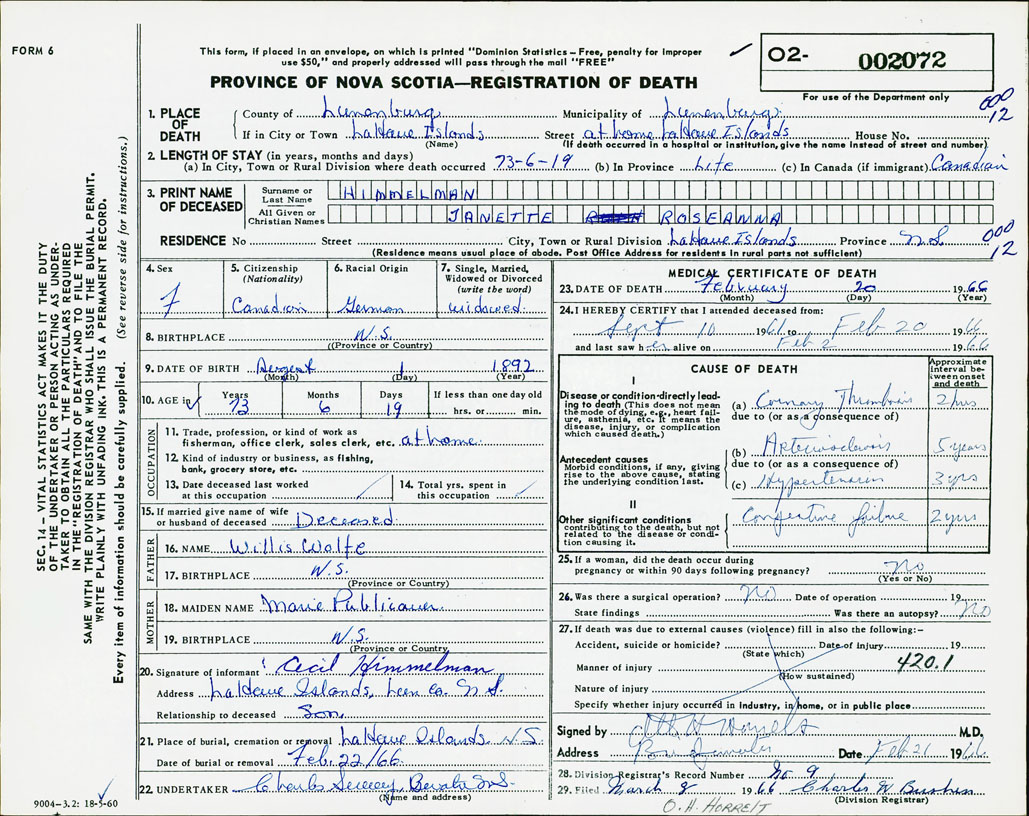 FORM 6
This form, if placed in an envelope, on which is printed "Dominion Statistics – Free, penalty for improper
use $50," and properly addressed will pass through the mail "FREE"
O2- 002072
For use of the Department only
PROVINCE OF NOVA SCOTIA—REGISTRATION OF DEATH
000
12
1. PLACE OF DEATH
County of Lunenburg Municipality of Lunenburg
If in City or Town LaHave Islands Street at home LaHave Islands House No.
(Name) (If death occurred in a hospital or institution, give the name instead of street and number)
2. LENGTH OF STAY (in years, months and days)
(a) In City, Town or Rural Division where death occurred 73-6-19 (b) In Province Life (c) In Canada (if immigrant) Canadian
3. PRINT NAME OF DECEASED
Surname or Last Name HIMMELMAN
All Given or Christian Names JANETTE ROSEANNA
RESIDENCE No Street City, Town or Rural Division LaHave Islands Province N.S.
000
12
(Residence means usual place of abode. Post Office Address for residents in rural parts not sufficient)
4. Sex F
5. Citizenship (Nationality) Canadian
6. Racial Origin German
7. Single, Married, Widowed or Divorced (write the word) widowed
8. BIRTHPLACE N.S.
(Province or Country)
9. DATE OF BIRTH August 1 1892
(Month) (Day) (Year)
10. AGE in Years 73 Months 6 Days 19 If less than one day old hrs. or min.
OCCUPATION
11. Trade, profession, or kind of work as
fisherman, office clerk, sales clerk, etc. at home
12. Kind of industry or business, as fishing,
bank, grocery store, etc.
13. Date deceased last worked at this occupation
14. Total yrs. spent in this occupation
15. If married give name of wife
or husband of deceased Deceased
FATHER
16. NAME Willis Wolfe
17. BIRTHPLACE N.S.
(Province or Country)
MOTHER
18. MAIDEN NAME Marie Publicover
19. BIRTHPLACE N.S.
(Province or Country)
20. Signature of informant Cecil Himmelman
Address LaHave Islands, Lun Co. N.S.
Relationship to deceased Son
21. Place of burial, cremation or removal LaHave Islands, N.S.
Date of burial or removal Feb. 22/66
22. UNDERTAKER Charles N.S.
(Name and address)
9004-3.2: 18-5-60
MEDICAL CERTIFICATE OF DEATH
23. DATE OF DEATH February 20 1966
(Month) (Day) (Year)
24. I HEREBY CERTIFY that I attended deceased from:
Sept 10 1961 to Feb 20 1966
and last saw her alive on Feb 2 1966
CAUSE OF DEATH
Approximate interval between onset and death
I
Disease or condition directly leading to death (This does not mean the mode of dying, e.g., heart failure, asthenia, etc. It means the disease, injury, or complication which caused death.)
(a) Coronary Thrombosis 2 hrs
due to (or as a consequence of)
Antecedent causes
Morbid conditions, if any, giving rise to the above cause, stating the underlying condition last.
(b) Arteriosclerosis 5 years
due to (or as a consequence of)
(c) Hypertension 3 yrs
II
Other significant conditions
contributing to the death, but not related to the disease or condition causing it.
Congestive failure 2 yrs
25. If a woman, did the death occur during
pregnancy or within 90 days following pregnancy? No
(Yes or No)
26. Was there a surgical operation? No Date of operation 19
State findings Was there an autopsy? No
27. If death was due to external causes (violence) fill in also the following:–
Accident, suicide or homicide? Date of injury 19
(State which)
Manner of injury 420.1
(How sustained)
Nature of injury
Specify whether injury occurred in Industry, in home, or in public place
Signed by M.D.
Address Bridgewater Date Feb 21 1966
28. Division Registrar's Record Number No 9
29. Filed March 8 1966 Charles W
(Division Registrar)
O.H. HORRELT
SEC. 14 – VITAL STATISTICS ACT MAKES IT THE DUTY
OF THE UNDERTAKER OR PERSON ACTING AS UNDER-
TAKER TO OBTAIN ALL THE PARTICULARS REQUIRED
IN THE "REGISTRATION OF DEATH" AND TO FILE THE
SAME WITH THE DIVISION REGISTRAR WHO SHALL ISSUE THE BURIAL PERMIT.
WRITE PLAINLY WITH UNFADING INK. THIS IS A PERMANENT RECORD.
Every item of information should be carefully supplied. (See reverse side for instructions.)